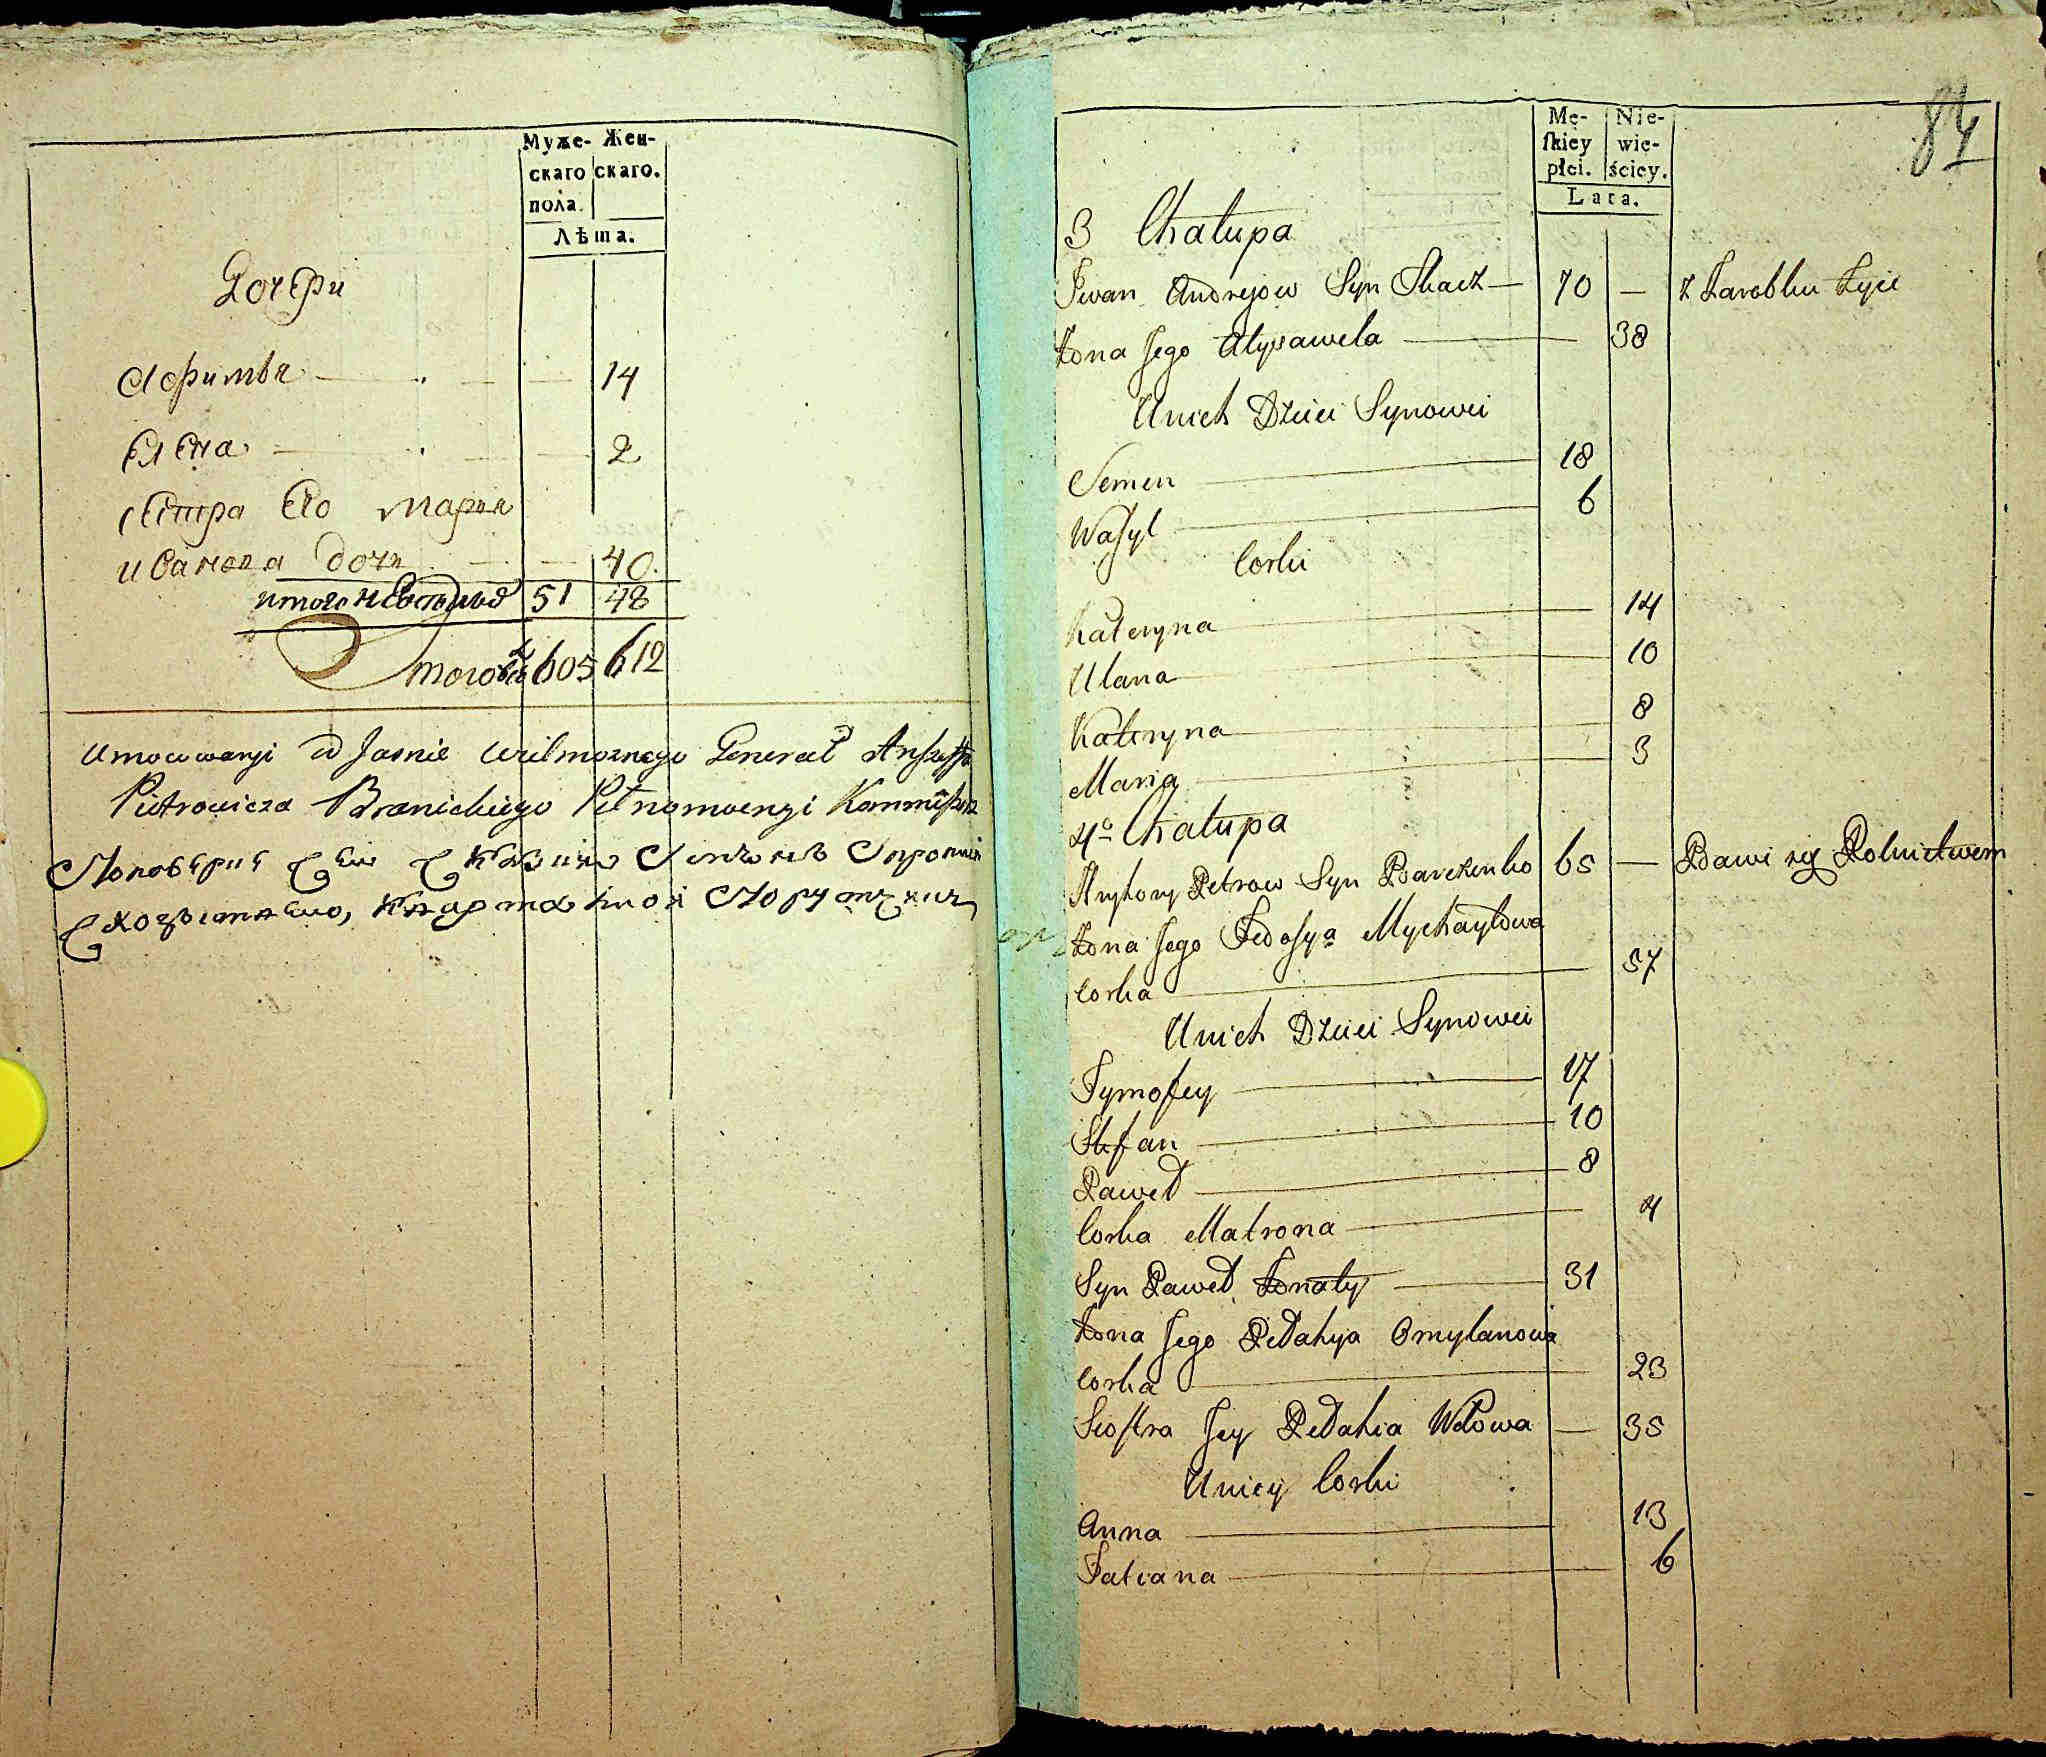 Муже- Жен-
скаго скаго.
пола.
Лѣта.
Дочери
Афимья 14
Елена 2
сестра Его марья
иванова дочь 40
итого 51 48
Итого 605 612
Umocowanyi od Jasnie Wielmoznego Generał
Pietrowicza Branickiego Pełnomocnyi
Mę- Nie-
ſkiey wie-
płci. ściey.
Lata.
84
3 Chałupa
Iwan Andrejow Syn Tkacz 70 — z Zarobku Zyie
Zona Jego Alysaweta 38
Unich Dzieci Synowei
Semen 18
Wasyl 6
Corki
Kateryna 14
Ulana 10
Kateryna 8
Maria 3
4o Chałupa
Petrow Syn 65 — Bawi się Rolnictwem
Zona Jego Fedosya Mychayłowa
Corka 57
Unich Dzieci Synowei
Tymofey 17
Stefan 10
Paweł 8
Corka Matrona 4
Syn Paweł Zonaty 31
Zona Jego Pełahya Omylanowa
Corka 23
Siostra Jey Pełahia Wdowa — 35
Uniey Corki
Anna 13
Tatiana 6